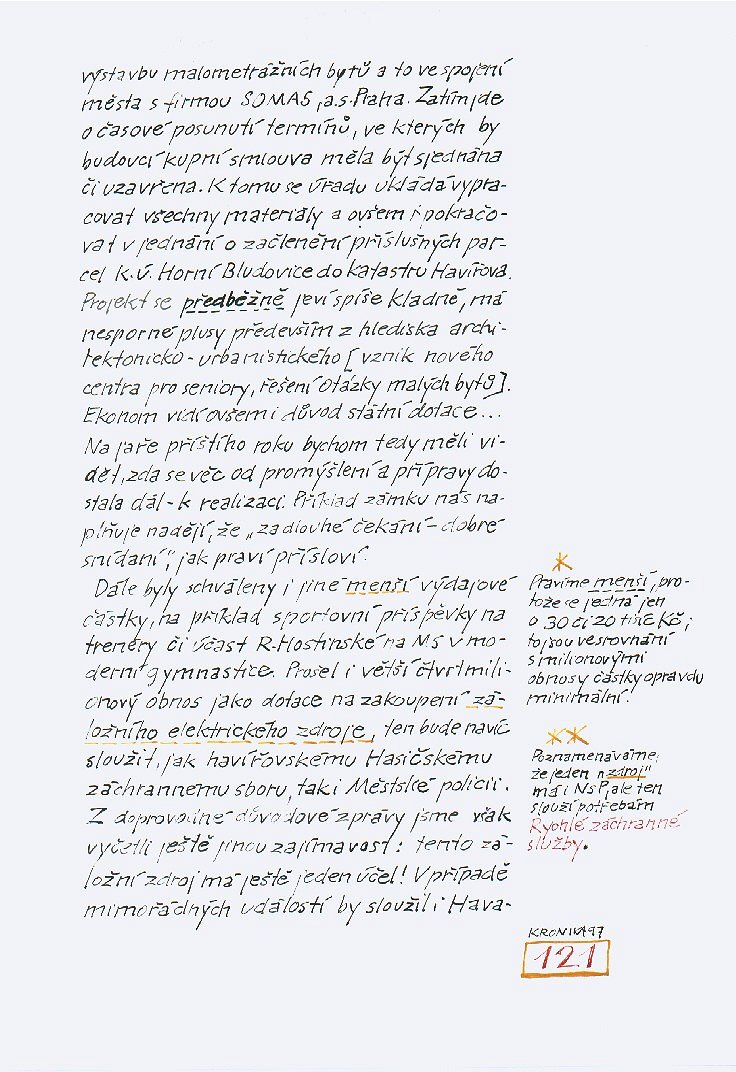 výstavbu malometrážních bytů a to ve spojení
města s firmou SOMAS, a.s. Praha. Zatím jde
o časové posunutí termínů, ve kterých by
budoucí kupní smlouva měla být sjednána
či uzavřena. K tomu se úřadu ukládá vypra-
covat všechny materiály a ovšem i pokračo-
vat v jednání o začlenění příslušných par-
cel k.ú. Horní Bludovice do katastru Havířova.
Projekt se předběžně jeví spíše kladně, má
nesporné plusy především z hlediska archi-
tektonicko-urbanistického [vznik nového
centra pro seniory, řešení otázky malých bytů].
Ekonom vidí ovšem i důvod státní dotace...
Na jaře příštího roku bychom tedy měli vi-
dět, zda se věc od promýšlení a přípravy do-
stala dál - k realizaci. Příklad zámku nás na-
plňuje nadějí, že „za dlouhé čekání - dobré
snídaní", jak praví přísloví.
Dále byly schváleny i jiné menší výdajové
částky, na příklad sportovní příspěvky na
trenéry či účast R. Hostinské na MS v mo-
derní gymnastice. Prošel i větší čtvrtmili-
onový obnos jako dotace na zakoupení zá-
ložního elektrického zdroje, ten bude navíc
sloužit, jak havířovskému Hasičskému
záchrannému sboru, tak i Městské policii.
Z doprovodné důvodové zprávy jsme však
vyčetli ještě jinou zajímavost: tento zá-
ložní zdroj má ještě jeden účel! V případě
mimořádných událostí by sloužil i Hava-
*
Pravíme menší, pro-
tože se jedná jen
o 30 či 20 tisíc Kč,
to jsou ve srovnání
s milionovými
obnosy částky opravdu
minimální.
**
Poznamenáváme,
že jeden „zdroj"
má i NsP, ale ten
slouží potřebám
Rychlé záchranné
služby.
KRONIKA 97
121